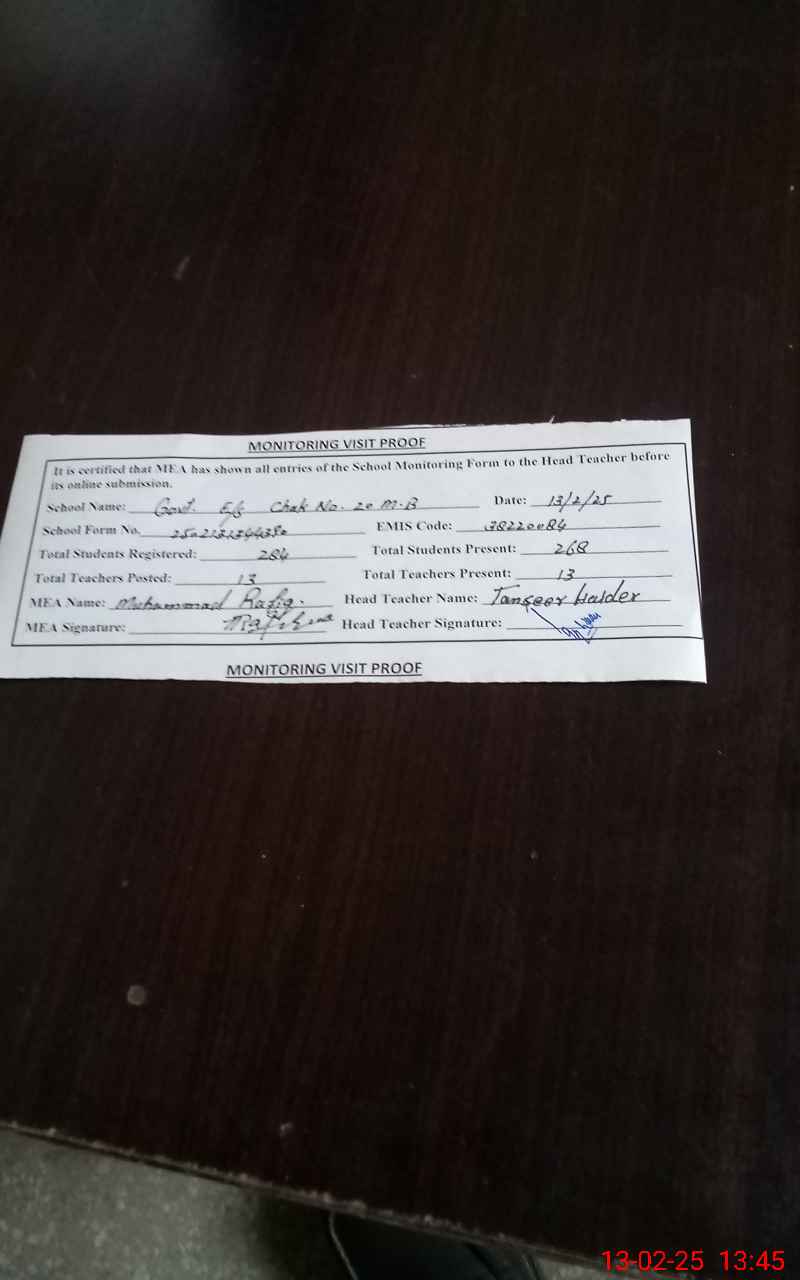 MONITORING VISIT PROOF
It is certified that MEA has shown all entries of the School Monitoring Form to the Head Teacher before
its online submission.
School Name: Govt. E/S Chak No. 20 M.B Date: 13/2/25
School Form No. EMIS Code: 38220084
Total Students Registered: 284 Total Students Present: 268
Total Teachers Posted: 13 Total Teachers Present: 13
MEA Name: Muhammad Rafiq. Head Teacher Name: Tanseer Haider
MEA Signature: Head Teacher Signature:
MONITORING VISIT PROOF
13-02-25 13:45